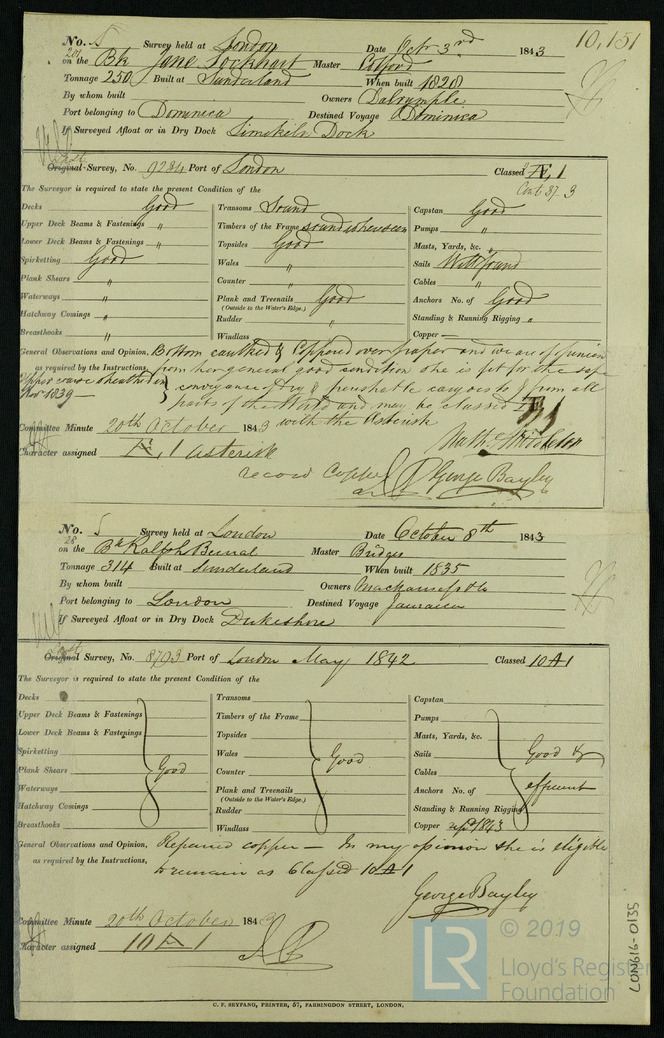 10,151
No. 5 Survey held at London Date Oct 3rd 1843
201 on the Bk Jane Lockhart Master
Tonnage 250 Built at Sunderland When built 1828
By whom built Owners Dalrymple
Port belonging to Dominica Destined Voyage Dominica
If Surveyed Afloat or in Dry Dock Limekiln Dock
Last
Original Survey, No. 9284 Port of London Classed Æ, 1
Cont 37. 3
The Surveyor is required to state the present Condition of the
Decks Good Transoms Sound Capstan Good
Upper Deck Beams & Fastenings " Timbers of the Frame sound where seen Pumps "
Lower Deck Beams & Fastenings " Topsides Good Masts, Yards, &c. "
Spirketting Good Wales " Sails Well found
Plank Shears " Counter " Cables "
Waterways " Plank and Treenails Good Anchors No. of Good
(Outside to the Water's Edge.)
Hatchway Comings " Rudder " Standing & Running Rigging "
Breasthooks " Windlass Copper —
General Observations and Opinion, Bottom caulked & Coppered over paper and we are of opinion
as required by the Instructions, from her general good condition she is fit for the safe
conveyance of dry & perishable cargoes to & from all
Novr 1839 —
parts of the World and may be classed Æ 1
with the Asterisk
Committee Minute 20th October 1843
Character assigned Æ, 1 asterisk
record Copper
George Bayley
No. 5 Survey held at London Date October 8th 1843
28 on the Bk Ralph Bernal Master Bridges
Tonnage 314 Built at Sunderland When built 1835
By whom built Owners
Port belonging to London Destined Voyage Jamaica
If Surveyed Afloat or in Dry Dock Dukeshore
Last
Original Survey, No. 8793 Port of London May 1842 Classed 10 A 1
The Surveyor is required to state the present Condition of the
Decks Transoms Capstan
Upper Deck Beams & Fastenings Timbers of the Frame Pumps
Lower Deck Beams & Fastenings Topsides Masts, Yards, &c.
Spirketting Wales Good Sails Good &
Plank Shears Good Counter Cables
Waterways Plank and Treenails Anchors No. of efficient
(Outside to the Water's Edge.)
Hatchway Comings Rudder Standing & Running Rigging
Breasthooks Windlass Copper rep 1843
General Observations and Opinion, Repaired copper — In my opinion she is eligible
as required by the Instructions, to remain as Classed 10 A 1
George Bayley
Committee Minute 20th October 1843
Character assigned 10 A 1
C. F. SEYFANG, PRINTER, 57, FARRINGDON STREET, LONDON.
LON616-0135
LR
© 2019
Lloyd's Register
Foundation